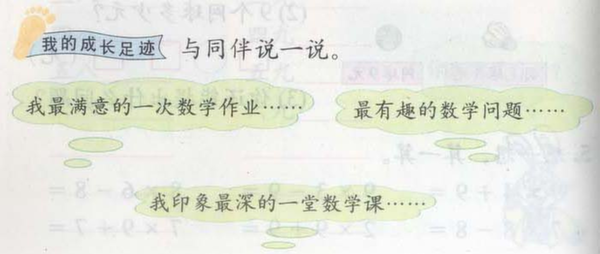 我的成长足迹 与同伴说一说。
我最满意的一次数学作业…… 最有趣的数学问题……
我印象最深的一堂数学课……